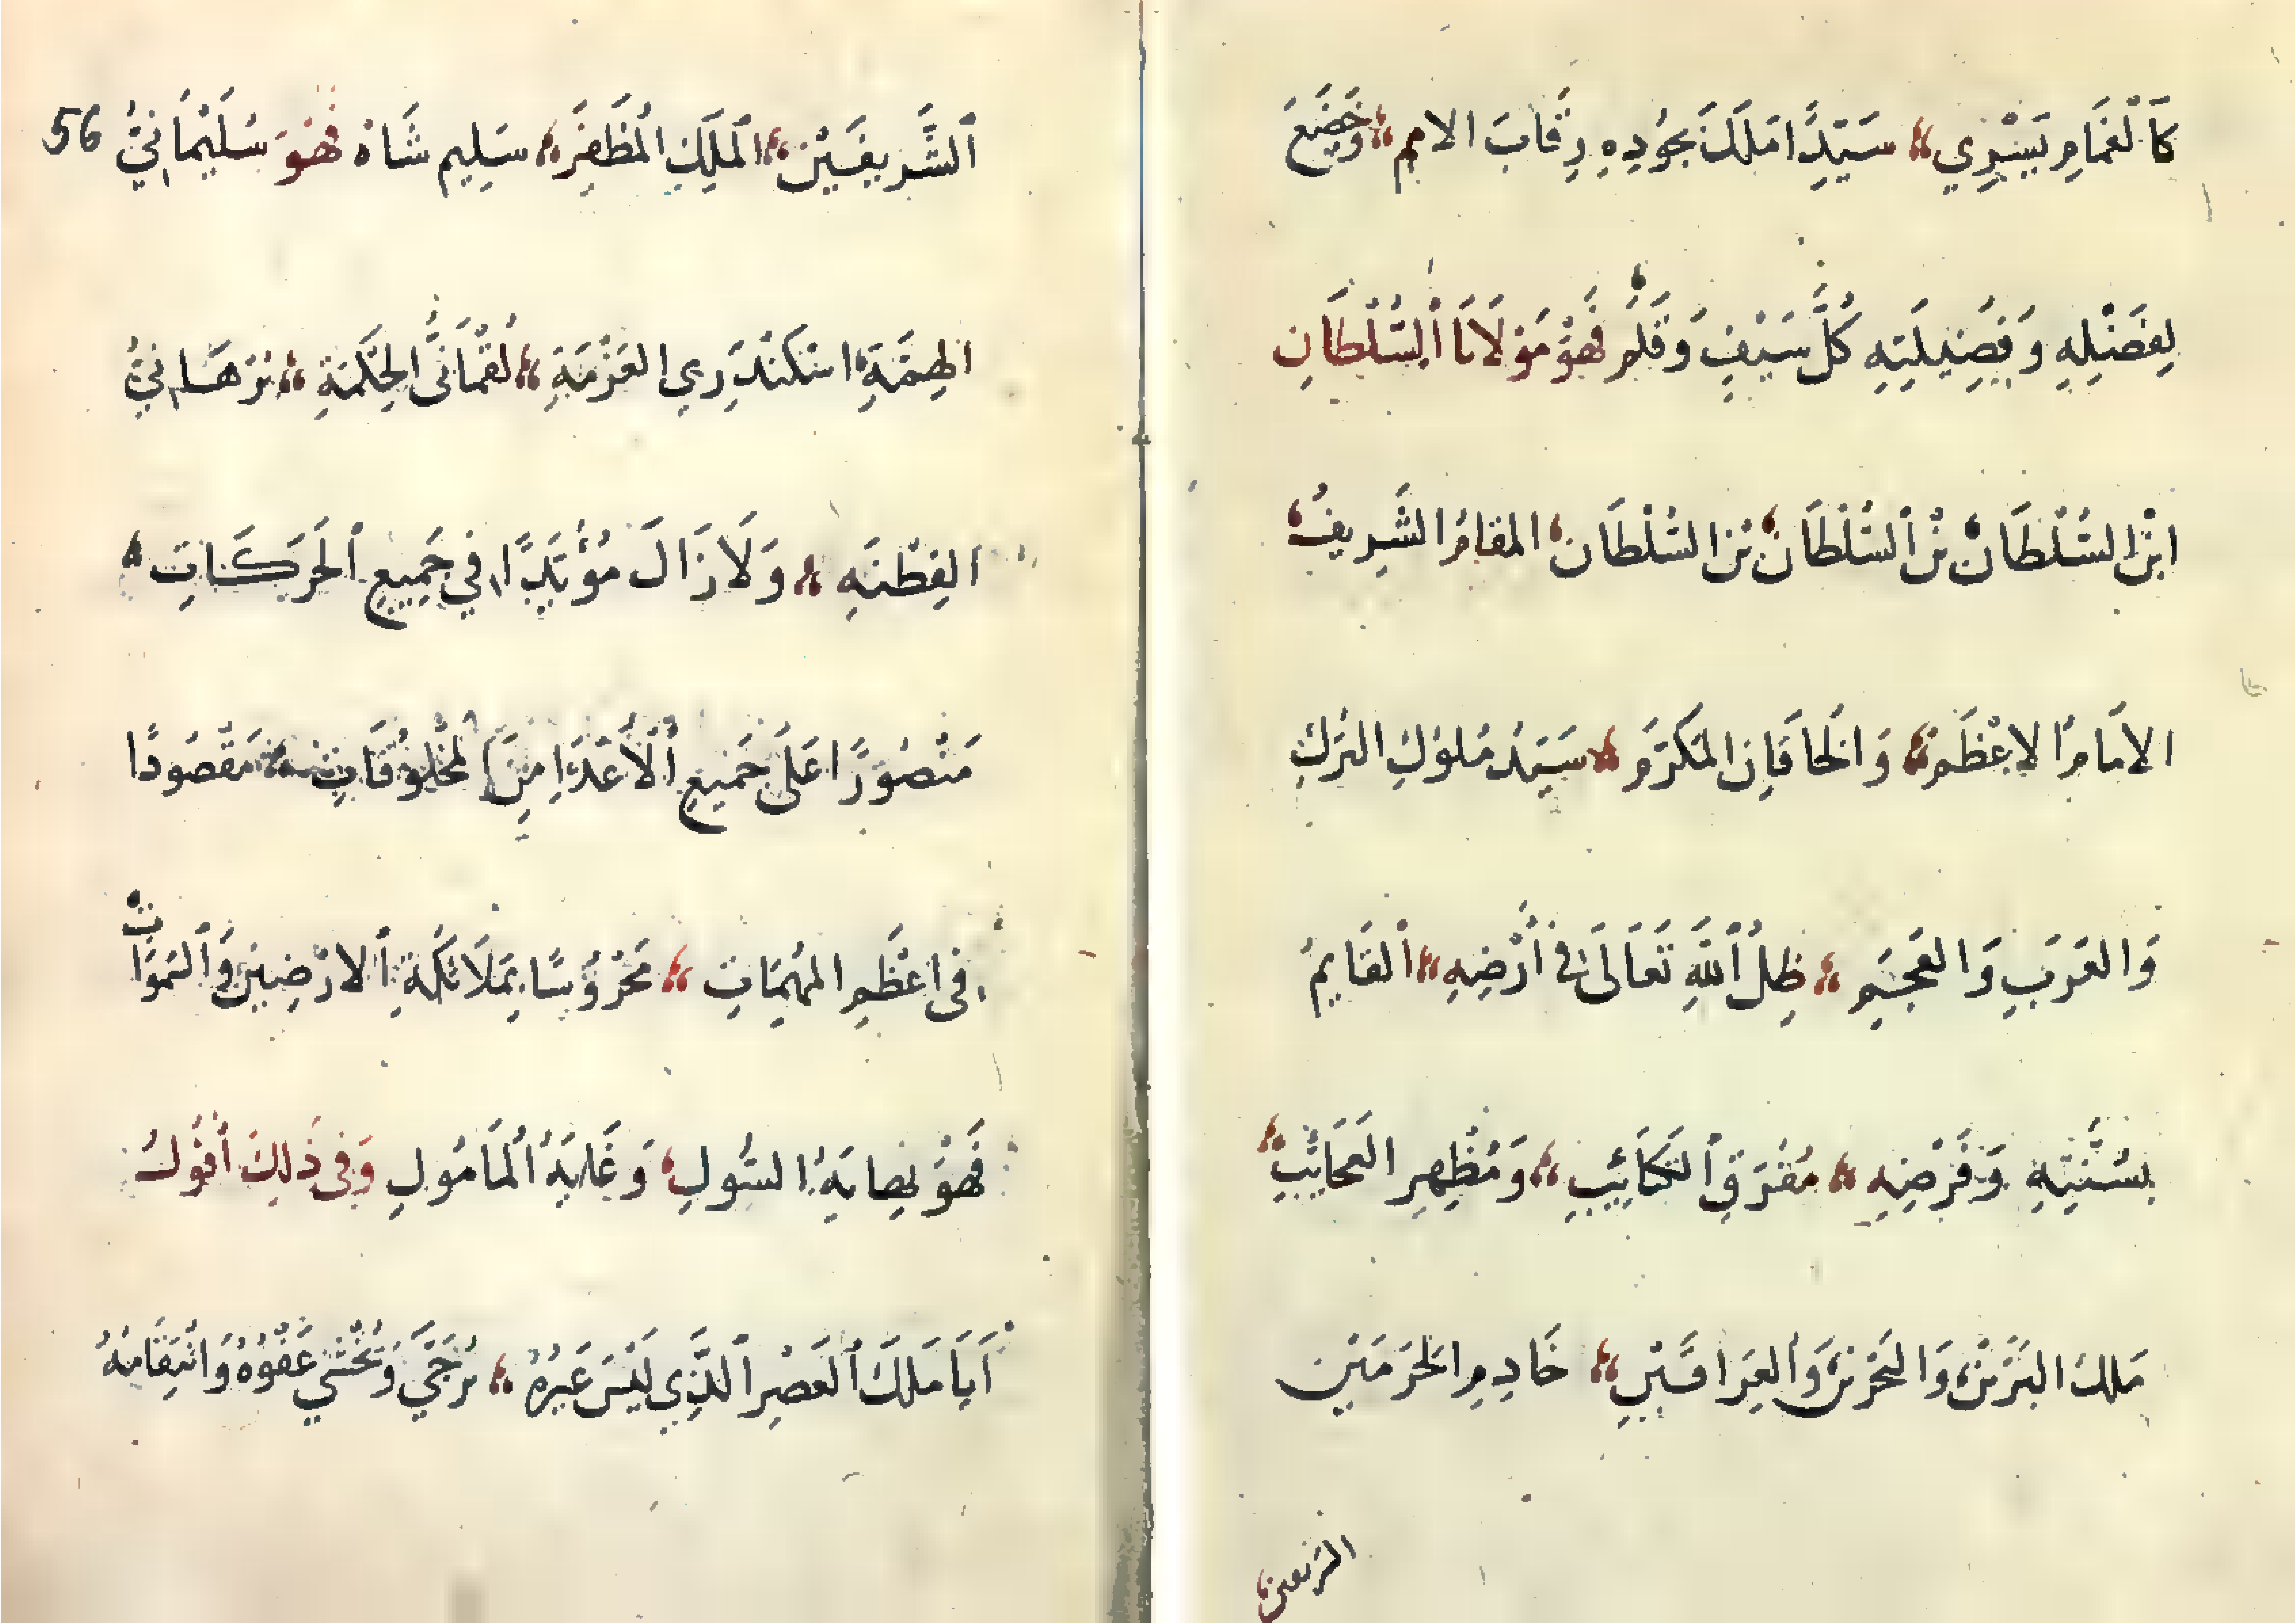 كَالْغَمَامِ يَسْرِي سَيِّدًا مَلَكَ بِجُودِهِ رِقَابَ الامم وَخَضَعَ
لِفَضْلِهِ وَفَضِيلَتِهِ كُلُّ سَيْفٍ وَقَلَمٍ فَهُوَ مَوْلَانَا اَلسُّلْطَانِ
ابْنِ السُّلْطَانِ بْنِ اَلسُّلْطَانِ بْنِ السُّلْطَانِ المقامُ الشَّرِيفُ
الاَمَامُ الاعْظَم وَالخَاقَانِ المُكَرَّمِ سَيِّدُ مُلوُكِ التركِ
وَالعَرَبِ وَالعَجَمِ ظِلُّ اَللَّهِ تَعَالَى فِي أَرْضِهِ اَلقَايِمُ
بِسُنَّتِهِ وَفَرْضِهِ مُفَرِّقِ اَلكَتَائِبِ وَمُظْهِرِ العَجَائِبِ
مَلِكُ البَرَّيْنِ وَالبَحْرَيْنِ وَالعِرَاقَيْنِ خَادِمِ الحَرَمَيْنِ
الشريفين
56 اَلشَّرِيفَيْنِ اَلمَلِكِ المُظَفَّرِ سَلِيم شَاه فَهُوَ سُلَيْمَانِيُّ
الهِمَّةِ اسْكَنْدَرِي العَزْمَةِ لُقْمَانِيُّ الحِكْمَةِ بُرْهَانِيُّ
الفِطْنَهِ وَلَا زَالَ مُؤَيَّدًا فِي جَمِيعِ اَلحَرَكَاتِ
مَنْصُوْرًا عَلَى جَمِيعِ اَلْأَعْدَاءِ مِنَ اَلمَخْلُوقَاتِ مَقْصُودًا
فِى اعْظَمِ المُهِمَّاتِ مَحْرُوْسًا بِمَلَائكَةِ اَلارْضِينَ وَاَلسَّمَوَاتِ
فَهُوَ نِهايَةُ السُّولِ وَغَايَةُ اُلمَامُولِ وَفِى ذَلِكَ أَقُولُ
أَيَا مَلِكَ اَلعَصْرِ اَلَّذِي لَيْسَ غَيْرُهُ يُرَجَّى وَيُخْشَى عَفْوُهُ وَانْتِقَامُهُ